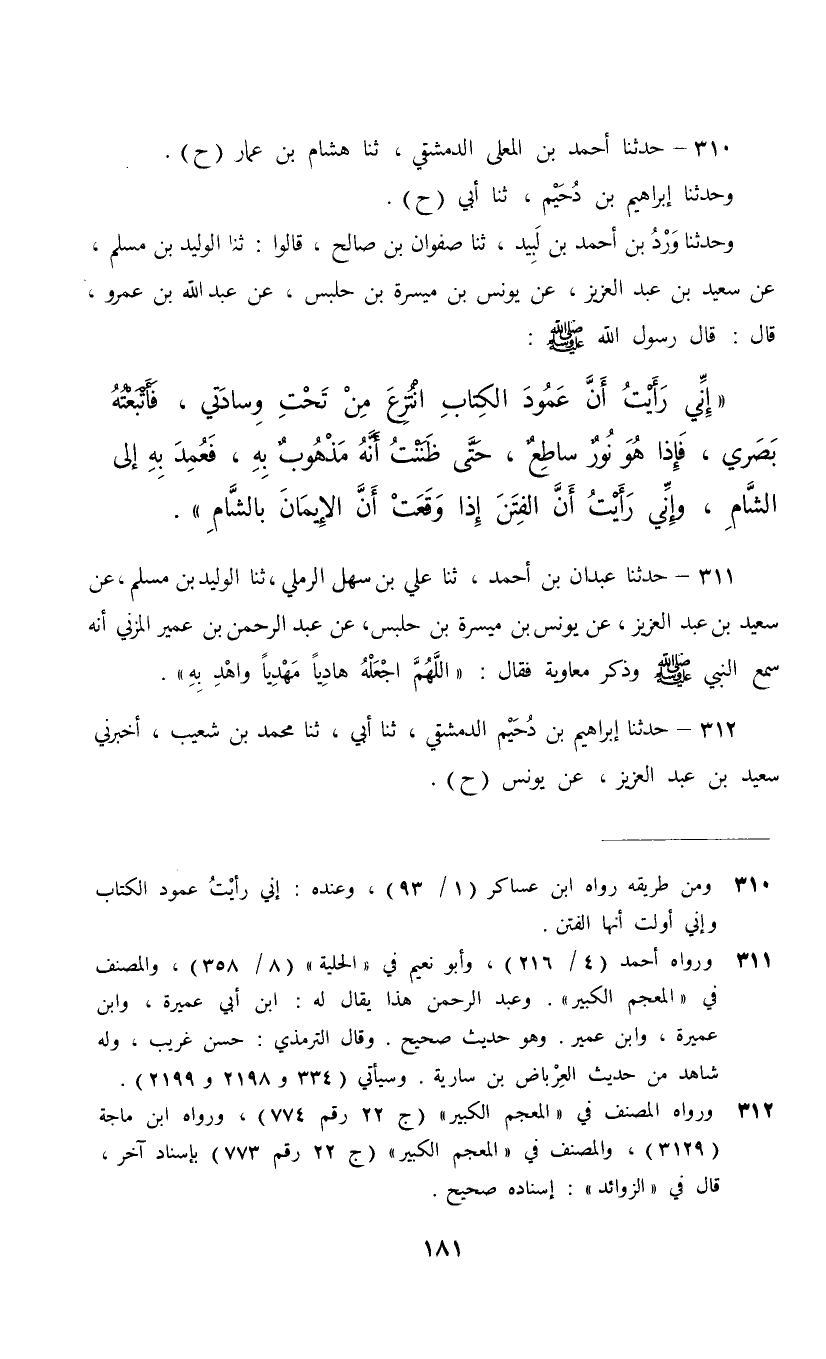 ٣١٠ – حدثنا أحمد بن المعلى الدمشقي ، ثنا هشام بن عمار (ح) .
وحدثنا إبراهيم بن دُحَيْم ، ثنا أبي (ح) .
وحدثنا وَرْدُ بن أحمد بن لَبِيد ، ثنا صفوان بن صالح ، قالوا : ثنا الوليد بن مسلم ،
عن سعيد بن عبد العزيز ، عن يونس بن ميسرة بن حلبس ، عن عبد الله بن عمرو ،
قال : قال رسول الله ﷺ :
« إِنِّي رَأَيْتُ أَنَّ عَمُودَ الكِتابِ انْتُزِعَ مِنْ تَحْتِ وِسادَتي ، فَأَتْبَعْتُهُ
بَصَري ، فَإِذا هُوَ نُورٌ ساطِعٌ ، حَتَّى ظَنَنْتُ أَنَّهُ مَذْهُوبٌ بِهِ ، فَعُمِدَ بِهِ إلى
الشَّامِ ، وإنِّي رَأَيْتُ أَنَّ الفِتَنَ إِذا وَقَعَتْ أَنَّ الإِيمَانَ بالشَّامِ » .
٣١١ – حدثنا عبدان بن أحمد ، ثنا علي بن سهل الرملي ، ثنا الوليد بن مسلم ، عن
سعيد بن عبد العزيز ، عن يونس بن ميسرة بن حلبس، عن عبد الرحمن بن عمير المزني أنه
سمع النبي ﷺ وذكر معاوية فقال : « اللَّهُمَّ اجْعَلْهُ هادِياً مَهْدِياً واهْدِ بِهِ» .
٣١٢ – حدثنا إبراهيم بن دُحَيْم الدمشقي ، ثنا أبي ، ثنا محمد بن شعيب ، أخبرني
سعيد بن عبد العزيز ، عن يونس (ح) .
٣١٠ ومن طريقه رواه ابن عساكر (١ / ٩٣) ، وعنده : إني رأيْتُ عمود الكتاب
وإني أولت أنها الفتن .
٣١١ ورواه أحمد (٤ / ٢١٦) ، وأبو نعيم في «الحلية» (٨ / ٣٥٨) ، والمصنف
في «المعجم الكبير» . وعبد الرحمن هذا يقال له : ابن أبي عميرة ، وابن
عميرة ، وابن عمير . وهو حديث صحيح . وقال الترمذي : حسن غريب ، وله
شاهد من حديث العِرْباض بن سارية . وسيأتي (٣٣٤ و ٢١٩٨ و ٢١٩٩) .
٣١٢ ورواه المصنف في «المعجم الكبير» (ج ٢٢ رقم ٧٧٤) ، ورواه ابن ماجة
(٣١٢٩) ، والمصنف في «المعجم الكبير» (ج ٢٢ رقم ٧٧٣) بإسناد آخر ،
قال في «الزوائد» : إسناده صحيح .
١٨١